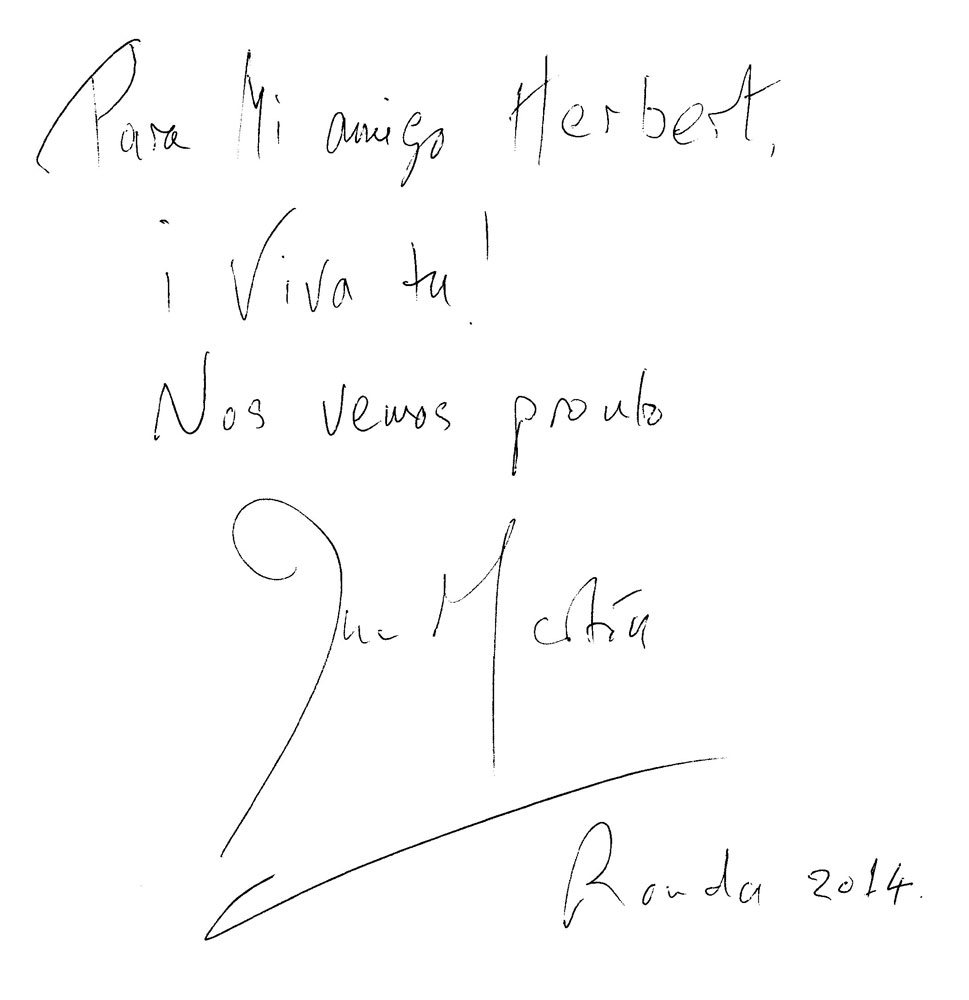 Para Mi amigo Herbert,
¡Viva tu!
Nos vemos pronto
Juan Martín
Ronda 2014.